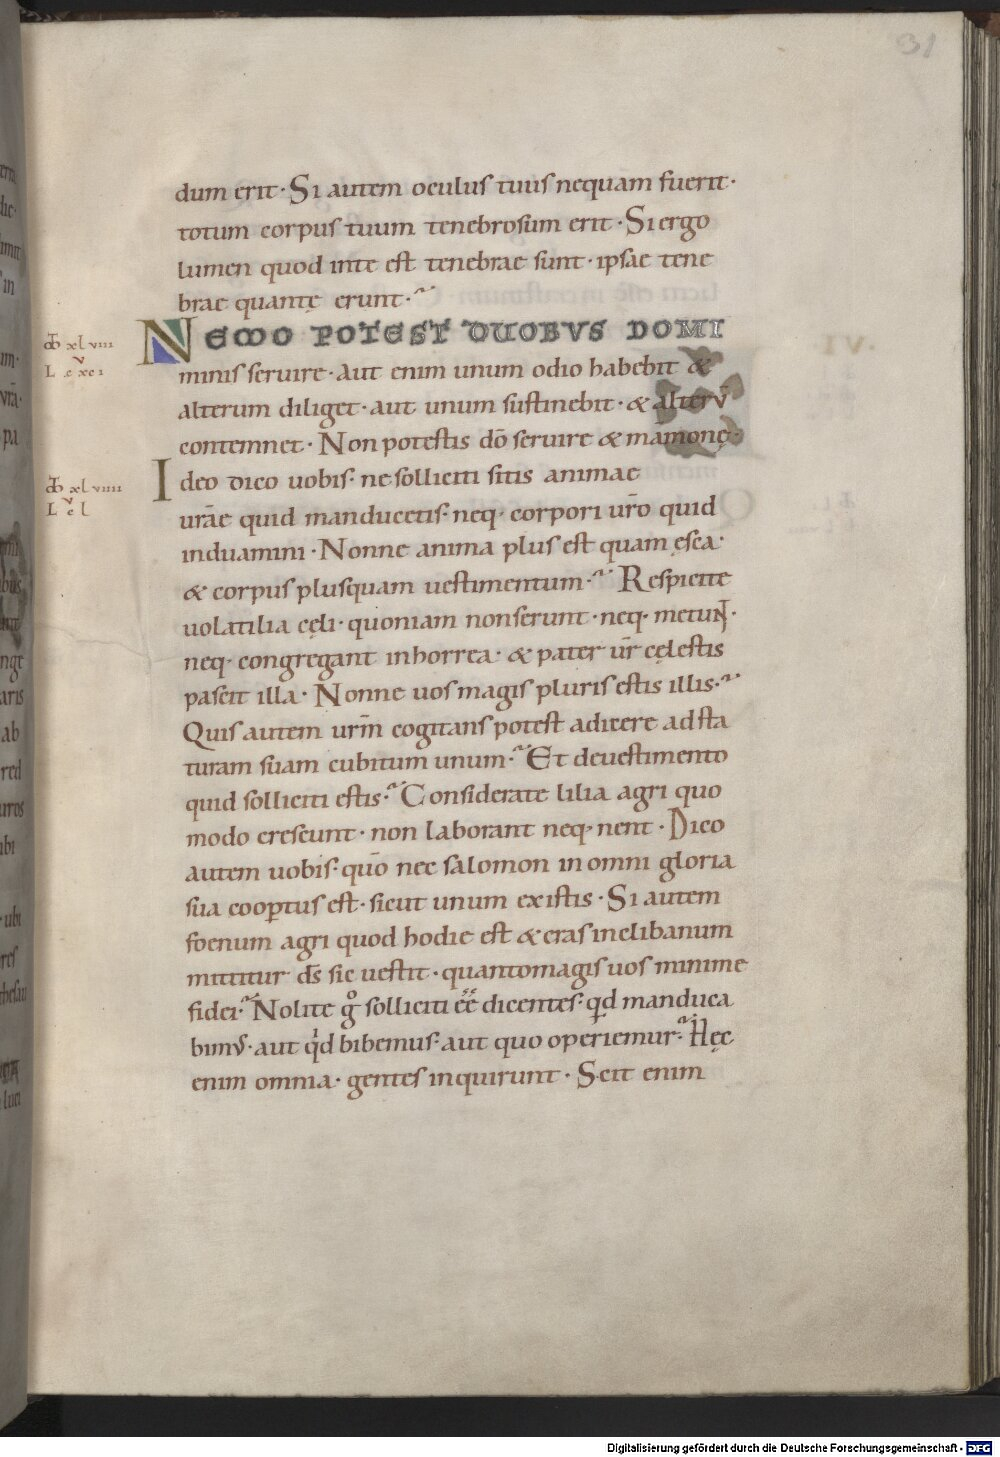 31
dum erit · Si autem oculus tuus nequam fuerit ·
totum corpus tuum tenebrosum erit · Si ergo
lumen quod inte est tenebrae sunt · ipsae tene
brae quantę erunt ·
NEMO POTEST DUOBVS DOMI
minis seruire · aut enim unum odio habebit &
alterum diliget · aut unum sustinebit · & alterū
contemnet · Non potestis dō seruire & māmonę ·
Ideo dico uobis · ne solliciti sitis animae
urāe quid manducetis · neq · corpori urō quid
induamini · Nonne anima plus est quam ęsca ·
& corpus plusquam uestimentum · Respicite
uolatilia cęli · quoniam nonserunt · neq · metunt ·
neq · congregant inhorrea · & pater ur̄ cęlestis
pascit illa · Nonne uos magis pluris estis illis ·
Quis autem urm̄ cogitans potest adicere adsta
turam suam cubitum unum · Et deuestimento
quid solliciti estis · Considerate lilia agri quo
modo crescunt · non laborant neq · nent · Dico
autem uobis · quō nec salomon in omni gloria
sua coopertus est · sicut unum ex istis · Si autem
foenum agri quod hodie est & cras inclibanum
mittitur ds̄ sic uestit · quantomagis uos minime
fidei · Nolite gͦ solliciti ēē dicentes · qd manduca
bimus · aut qd bibemus · aut quo operiemur · Hęc
enim omnia · gentes inquirunt · Scit enim
xlviii
v
L c xci
xlviiii
v
L c l
Digitalisierung gefördert durch die Deutsche Forschungsgemeinschaft - DFG